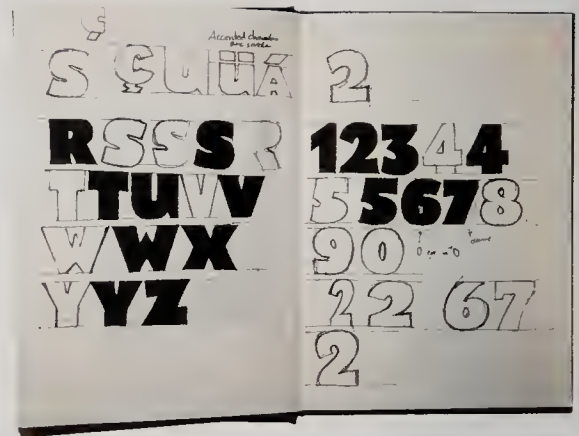 Accented characters
are smaller
S Ç U Ü Á
R S S S R
T T U V V
W W X
Y Y Z
2
1 2 3 4 4
5 5 6 7 8
9 0
2 2 6 7
2